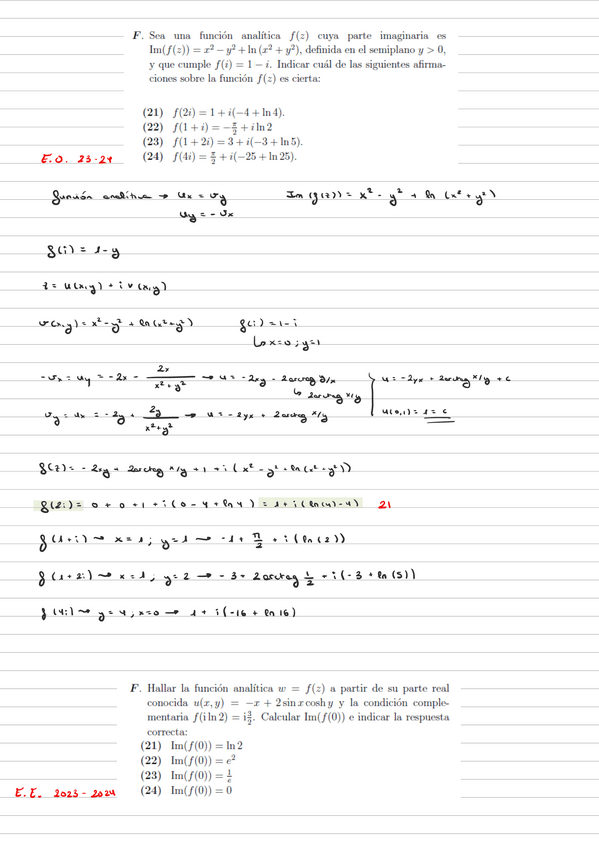 F. Sea una función analítica f(z) cuya parte imaginaria es
Im(f(z)) = x² − y² + ln (x² + y²), definida en el semiplano y > 0,
y que cumple f(i) = 1 − i. Indicar cuál de las siguientes afirma-
ciones sobre la función f(z) es cierta:
(21) f(2i) = 1 + i(−4 + ln 4).
(22) f(1 + i) = −π/2 + i ln 2
(23) f(1 + 2i) = 3 + i(−3 + ln 5).
(24) f(4i) = π/2 + i(−25 + ln 25).
E.O. 23-24
función analítica → ux = vy Im(f(z)) = x² - y² + ln (x² + y²)
uy = - vx
f(i) = 1 - y
z = u(x,y) + i v(x,y)
v(x,y) = x² - y² + ln(x² + y²) f(i) = 1 - i
↳ x=0 ; y=1
-vx = uy = -2x - 2x/(x² + y²) → u = -2xy - 2arctg y/x
↳ 2arctg x/y
u = -2yx + 2arctg x/y + c
vy = ux = -2y + 2y/(x² + y²) → u = -2yx + 2arctg x/y
u(0,1) = 1 = c
f(z) = - 2xy + 2arctg x/y + 1 + i (x² - y² + ln(x² + y²))
f(2i) = 0 + 0 + 1 + i (0 - 4 + ln 4) = 1 + i (ln(4) - 4) 21
f(1+i) → x = 1 ; y = 1 → -1 + π/2 + i (ln(2))
f(1+2i) → x = 1, y = 2 → -3 + 2arctg 1/2 + i(-3 + ln(5))
f(4i) → y = 4, x=0 → 1 + i(-16 + ln 16)
F. Hallar la función analítica w = f(z) a partir de su parte real
conocida u(x, y) = −x + 2 sin x cosh y y la condición comple-
mentaria f(i ln 2) = i3/2. Calcular Im(f(0)) e indicar la respuesta
correcta:
(21) Im(f(0)) = ln 2
(22) Im(f(0)) = e²
(23) Im(f(0)) = 1/e
(24) Im(f(0)) = 0
E.E. 2023-2024